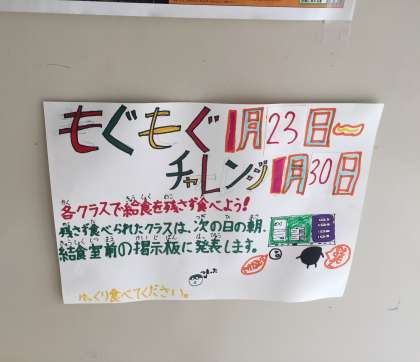 もぐもぐ 1月23日〜
チャレンジ 1月30日
各クラスで給食を残さず食べよう!
残さず食べられたクラスは、次の日の朝、
給食室前の掲示板に発表します。
ゆっくり食べてください。